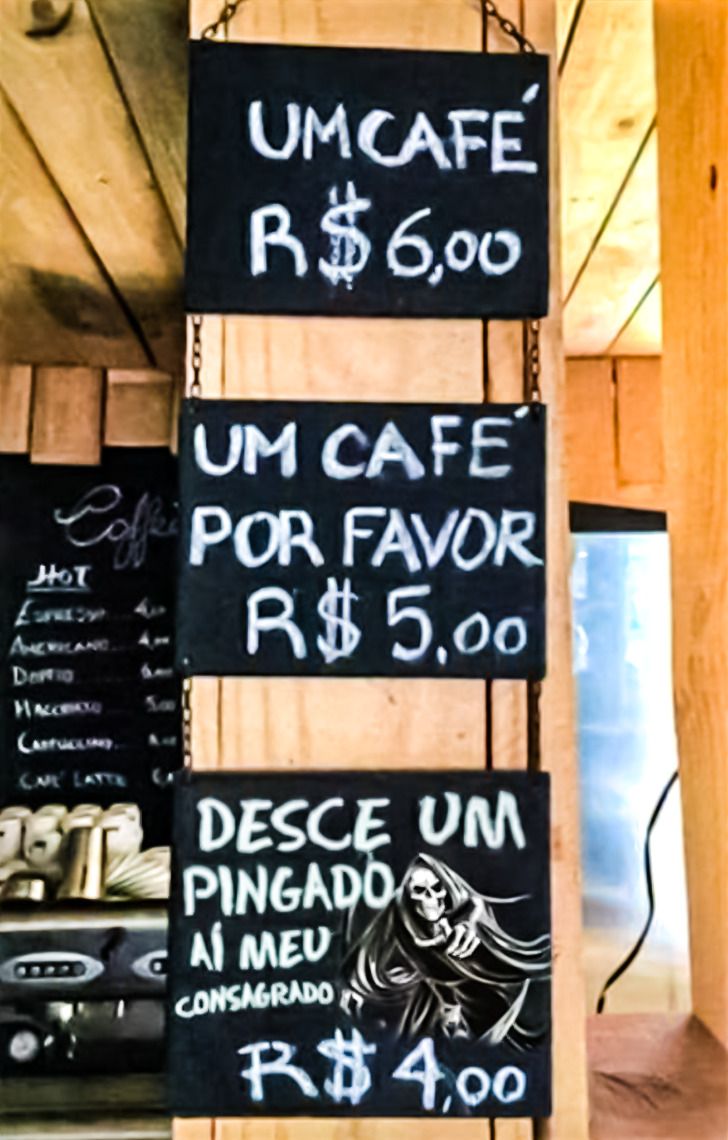 UM CAFÉ
R$ 6,00
UM CAFÉ
POR FAVOR
R$ 5,00
DESCE UM
PINGADO
AÍ MEU
CONSAGRADO
R$ 4,00
Coffe
HOT
ESPRESSO
AMERICANO
DOPPIO
MACCHIATO 5,00
CAPPUCCINO
CAFÉ LATTE